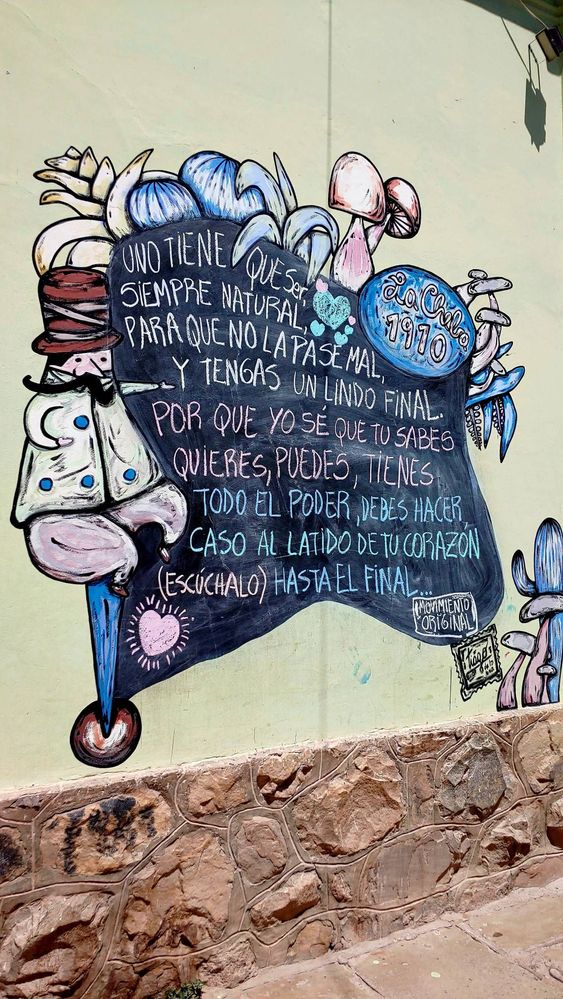 UNO TIENE QUE Ser,
SIEMPRE NATURAL,
PARA QUE NO LA PASE MAL,
Y TENGAS UN LINDO FINAL.
POR QUE YO SÉ QUE TU SABES
QUIERES, PUEDES, TIENES
TODO EL PODER, DEBES HACER,
CASO AL LATIDO DE TU CORAZÓN
(ESCÚCHALO) HASTA EL FINAL...
MOVIMIENTO
ORIGINAL
La Chula
1910